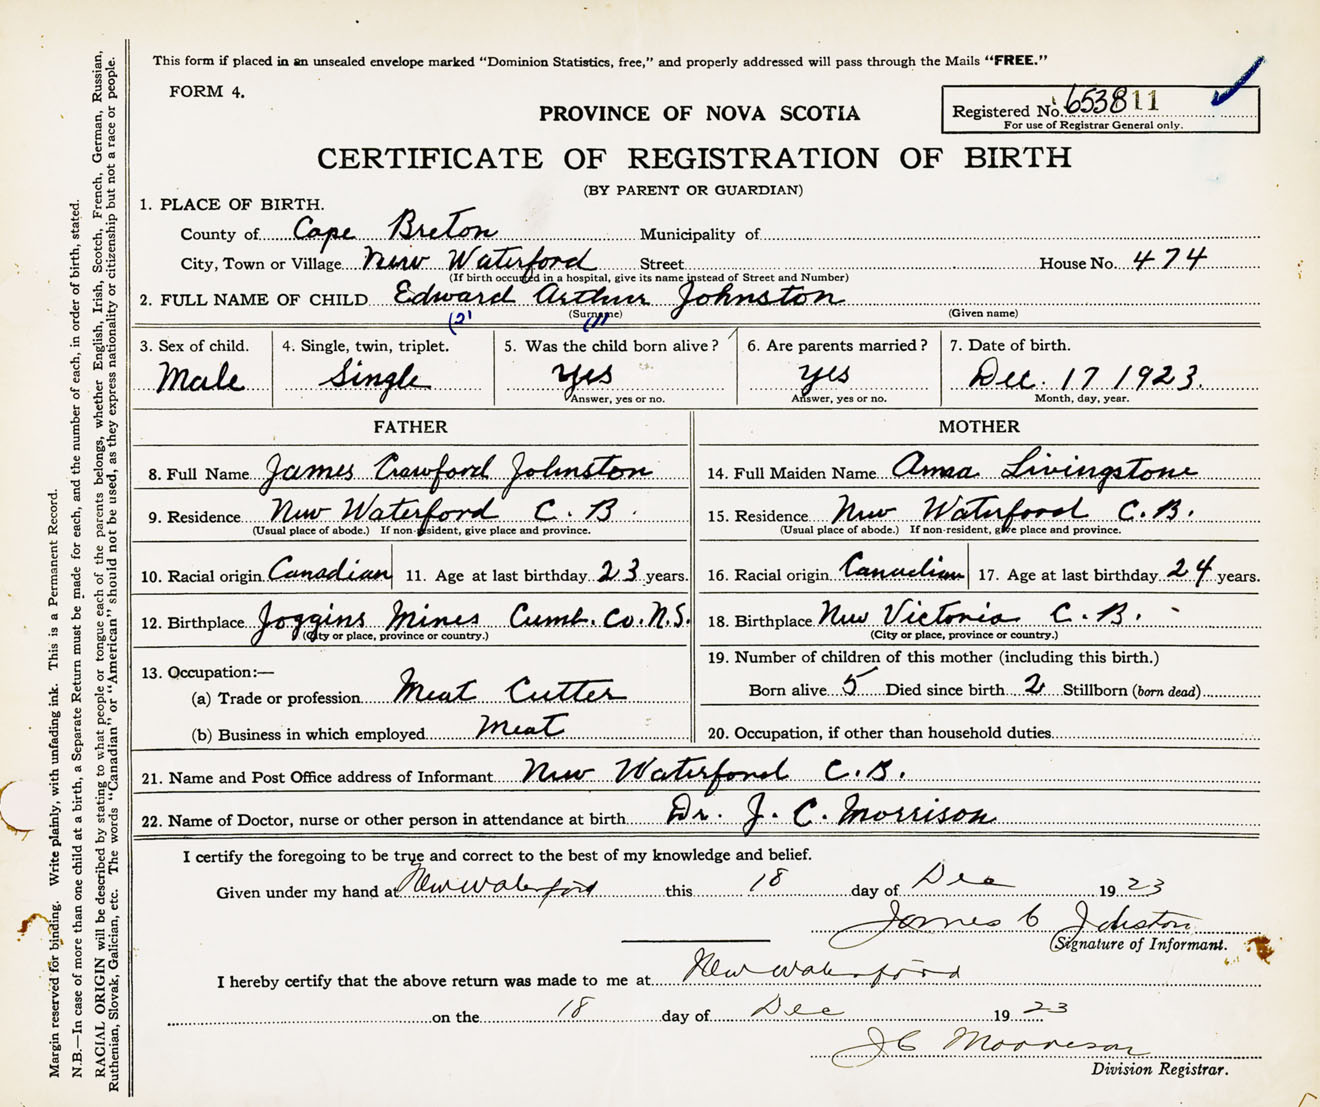 This form if placed in an unsealed envelope marked "Dominion Statistics, free," and properly addressed will pass through the Mails "FREE."
FORM 4.
Registered No. 653811
For use of Registrar General only.
PROVINCE OF NOVA SCOTIA
CERTIFICATE OF REGISTRATION OF BIRTH
(BY PARENT OR GUARDIAN)
1. PLACE OF BIRTH.
County of Cape Breton Municipality of
City, Town or Village New Waterford Street House No. 474
(If birth occurred in a hospital, give its name instead of Street and Number)
2. FULL NAME OF CHILD Edward Arthur Johnston
(Surname) (Given name)
(2) (1)
3. Sex of child. 4. Single, twin, triplet. 5. Was the child born alive? 6. Are parents married? 7. Date of birth.
Male Single Yes Yes Dec. 17 1923.
Answer, yes or no. Answer, yes or no. Month, day, year.
FATHER MOTHER
8. Full Name James Crawford Johnston 14. Full Maiden Name Anna Livingstone
9. Residence New Waterford C. B. 15. Residence New Waterford C.B.
(Usual place of abode.) If non-resident, give place and province. (Usual place of abode.) If non-resident, give place and province.
10. Racial origin Canadian 11. Age at last birthday 23 years. 16. Racial origin Canadian 17. Age at last birthday 24 years.
12. Birthplace Joggins Mines Cumb. Co. N.S. 18. Birthplace New Victoria C. B.
(City or place, province or country.) (City or place, province or country.)
13. Occupation:— 19. Number of children of this mother (including this birth.)
(a) Trade or profession Meat Cutter Born alive 5 Died since birth 2 Stillborn (born dead)
(b) Business in which employed Meat 20. Occupation, if other than household duties
21. Name and Post Office address of Informant New Waterford C.B.
22. Name of Doctor, nurse or other person in attendance at birth Dr. J. C. Morrison
I certify the foregoing to be true and correct to the best of my knowledge and belief.
Given under my hand at New Waterford this 18 day of Dec 1923
James C Johnston
(Signature of Informant.
I hereby certify that the above return was made to me at New Waterford
on the 18 day of Dec 1923
J C Morrison
Division Registrar.
Margin reserved for binding. Write plainly, with unfading ink. This is a Permanent Record.
N.B.—In case of more than one child at a birth, a Separate Return must be made for each, and the number of each, in order of birth, stated.
RACIAL ORIGIN will be described by stating to what people or tongue each of the parents belongs, whether English, Irish, Scotch, French, German, Russian,
Ruthenian, Slovak, Galician, etc. The words "Canadian" or "American" should not be used, as they express nationality or citizenship but not a race or people.